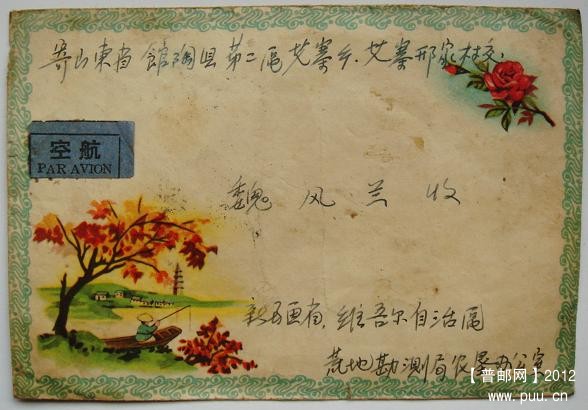 寄山東省 館陶县 第二區艾寨乡. 艾寨邢家村交:
空航
PAR AVION
魏 风 兰 收
新疆省, 维吾尔自治區
荒地勘測局 办公室
【普邮网】2012
www.puu.cn